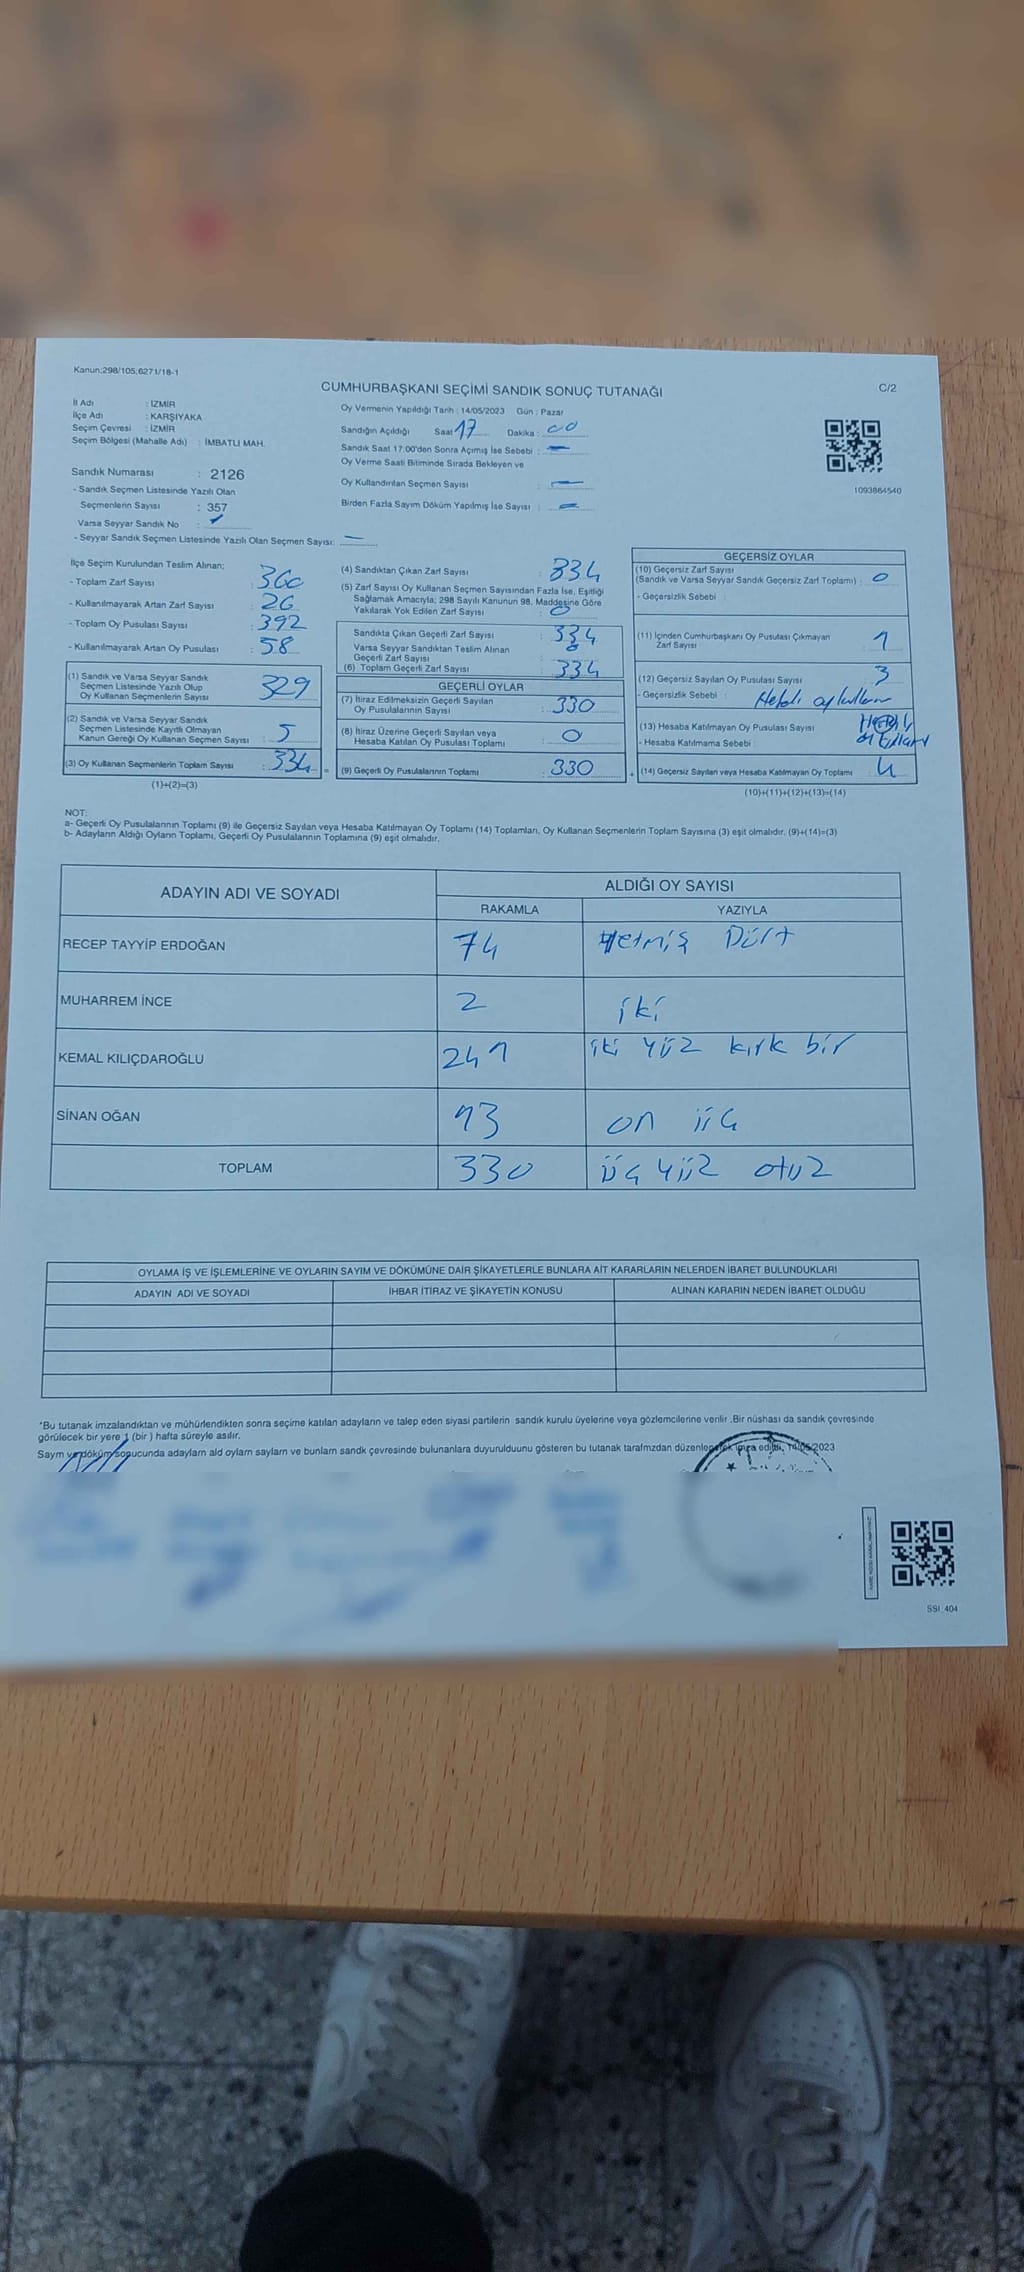 Kanun:298/105;6271/18-1
CUMHURBAŞKANI SEÇİMİ SANDIK SONUÇ TUTANAĞI
C/2
İl Adı : İZMİR
İlçe Adı : KARŞIYAKA
Seçim Çevresi : İZMİR
Seçim Bölgesi (Mahalle Adı) : İMBATLI MAH.
Sandık Numarası : 2126
- Sandık Seçmen Listesinde Yazılı Olan
Seçmenlerin Sayısı : 357
Varsa Seyyar Sandık No :
- Seyyar Sandık Seçmen Listesinde Yazılı Olan Seçmen Sayısı: —
Oy Vermenin Yapıldığı Tarih : 14/05/2023 Gün : Pazar
Sandığın Açıldığı Saat 17 Dakika : 00
Sandık Saat 17:00'den Sonra Açımış İse Sebebi : —
Oy Verme Saati Bitiminde Sırada Bekleyen ve
Oy Kullandırılan Seçmen Sayısı : —
Birden Fazla Sayım Döküm Yapılmış İse Sayısı : —
1093864540
İlçe Seçim Kurulundan Teslim Alınan;
- Toplam Zarf Sayısı : 360
- Kullanılmayarak Artan Zarf Sayısı : 26
- Toplam Oy Pusulası Sayısı : 392
- Kullanılmayarak Artan Oy Pusulası : 58
(1) Sandık ve Varsa Seyyar Sandık
Seçmen Listesinde Yazılı Olup
Oy Kullanan Seçmenlerin Sayısı : 329
(2) Sandık ve Varsa Seyyar Sandık
Seçmen Listesinde Kayıtlı Olmayan
Kanun Gereği Oy Kullanan Seçmen Sayısı : 5
(3) Oy Kullanan Seçmenlerin Toplam Sayısı : 334
(1)+(2)=(3)
(4) Sandıktan Çıkan Zarf Sayısı : 334
(5) Zarf Sayısı Oy Kullanan Seçmen Sayısından Fazla İse, Eşitliği
Sağlamak Amacıyla, 298 Sayılı Kanunun 98. Maddesine Göre
Yakılarak Yok Edilen Zarf Sayısı : 0
Sandıkta Çıkan Geçerli Zarf Sayısı : 334
Varsa Seyyar Sandıktan Teslim Alınan
Geçerli Zarf Sayısı : 0
(6) Toplam Geçerli Zarf Sayısı : 334
GEÇERLİ OYLAR
(7) İtiraz Edilmeksizin Geçerli Sayılan
Oy Pusulalarının Sayısı : 330
(8) İtiraz Üzerine Geçerli Sayılan veya
Hesaba Katılan Oy Pusulası Toplamı : 0
(9) Geçerli Oy Pusulalarının Toplamı : 330
GEÇERSİZ OYLAR
(10) Geçersiz Zarf Sayısı
(Sandık ve Varsa Seyyar Sandık Geçersiz Zarf Toplamı) : 0
- Geçersizlik Sebebi :
(11) İçinden Cumhurbaşkanı Oy Pusulası Çıkmayan
Zarf Sayısı : 1
(12) Geçersiz Sayılan Oy Pusulası Sayısı : 3
- Geçersizlik Sebebi :
(13) Hesaba Katılmayan Oy Pusulası Sayısı :
- Hesaba Katılmama Sebebi :
(14) Geçersiz Sayılan veya Hesaba Katılmayan Oy Toplamı : 4
(10)+(11)+(12)+(13)=(14)
NOT:
a- Geçerli Oy Pusulalarının Toplamı (9) ile Geçersiz Sayılan veya Hesaba Katılmayan Oy Toplamı (14) Toplamları, Oy Kullanan Seçmenlerin Toplam Sayısına (3) eşit olmalıdır. (9)+(14)=(3)
b- Adayların Aldığı Oyların Toplamı, Geçerli Oy Pusulalarının Toplamına (9) eşit olmalıdır.
ADAYIN ADI VE SOYADI
ALDIĞI OY SAYISI
RAKAMLA YAZIYLA
RECEP TAYYİP ERDOĞAN 74 Yetmiş Dört
MUHARREM İNCE 2 iki
KEMAL KILIÇDAROĞLU 241 iki yüz kırk bir
SİNAN OĞAN 13 on üç
TOPLAM 330 üç yüz otuz
OYLAMA İŞ VE İŞLEMLERİNE VE OYLARIN SAYIM VE DÖKÜMÜNE DAİR ŞİKAYETLERLE BUNLARA AİT KARARLARIN NELERDEN İBARET BULUNDUKLARI
ADAYIN ADI VE SOYADI İHBAR İTİRAZ VE ŞİKAYETİN KONUSU ALINAN KARARIN NEDEN İBARET OLDUĞU
*Bu tutanak imzalandıktan ve mühürlendikten sonra seçime katılan adayların ve talep eden siyasi partilerin sandık kurulu üyelerine veya gözlemcilerine verilir .Bir nüshası da sandık çevresinde
görülecek bir yere 1 (bir ) hafta süreyle asılır.
Saym ve döküm sonucunda adaylarn ald oylarn saylarn ve bunlarn sandk çevresinde bulunanlara duyurulduunu gösteren bu tutanak tarafmzdan düzenlenerek imza edildi. 14/05/2023
SSI_404